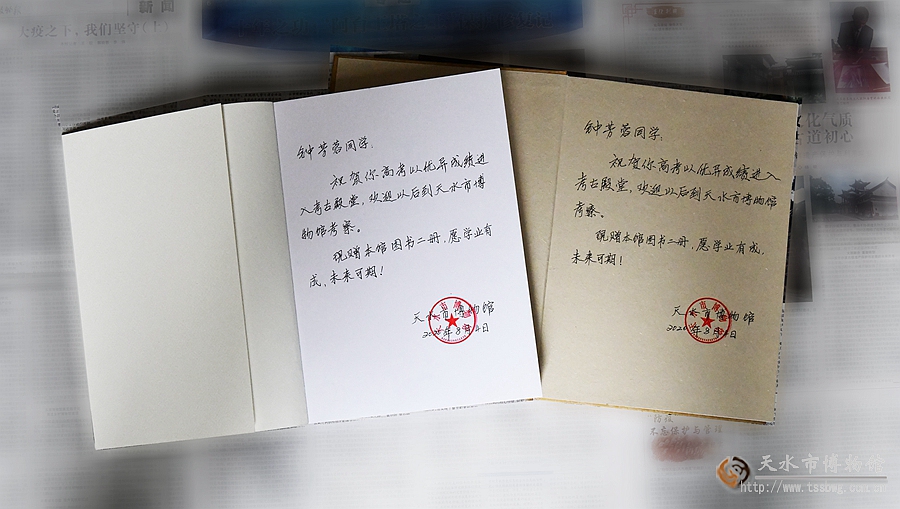 新闻
大疫之下，我们坚守（上）
钟芳蓉同学：
祝贺你高考以优异成绩进
入考古殿堂，欢迎以后到天水市博
物馆考察。
现赠本馆图书二册，愿学业有
成，未来可期！
天水市博物馆
2020年8月4日
钟芳蓉同学：
祝贺你高考以优异成绩进入
考古殿堂，欢迎以后到天水市博物馆
考察。
现赠本馆图书二册，愿学业有成，
未来可期！
天水市博物馆
2020年8月4日
化气质
道初心
天水市博物馆